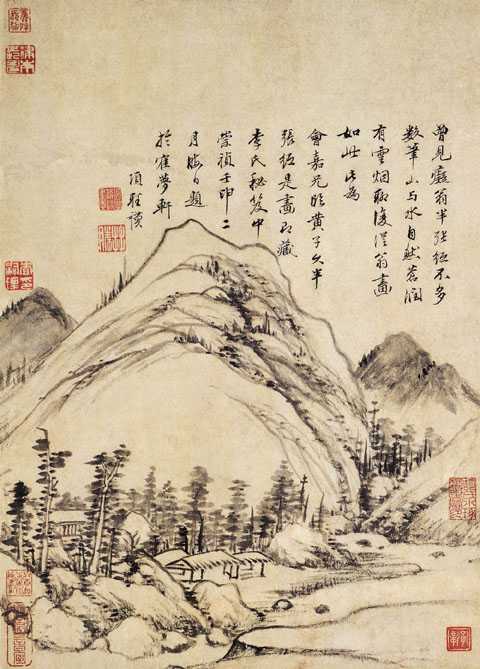 曾見癡翁半張紙不多
數筆山与水自然蒼潤
有雲烟聊復從翁畫
如此此為
會嘉兄臨黃子久半
張紙是畫乃藏
李氏秘笈中
崇禎壬申二
月晦日題
於寉夢軒
項聖謨